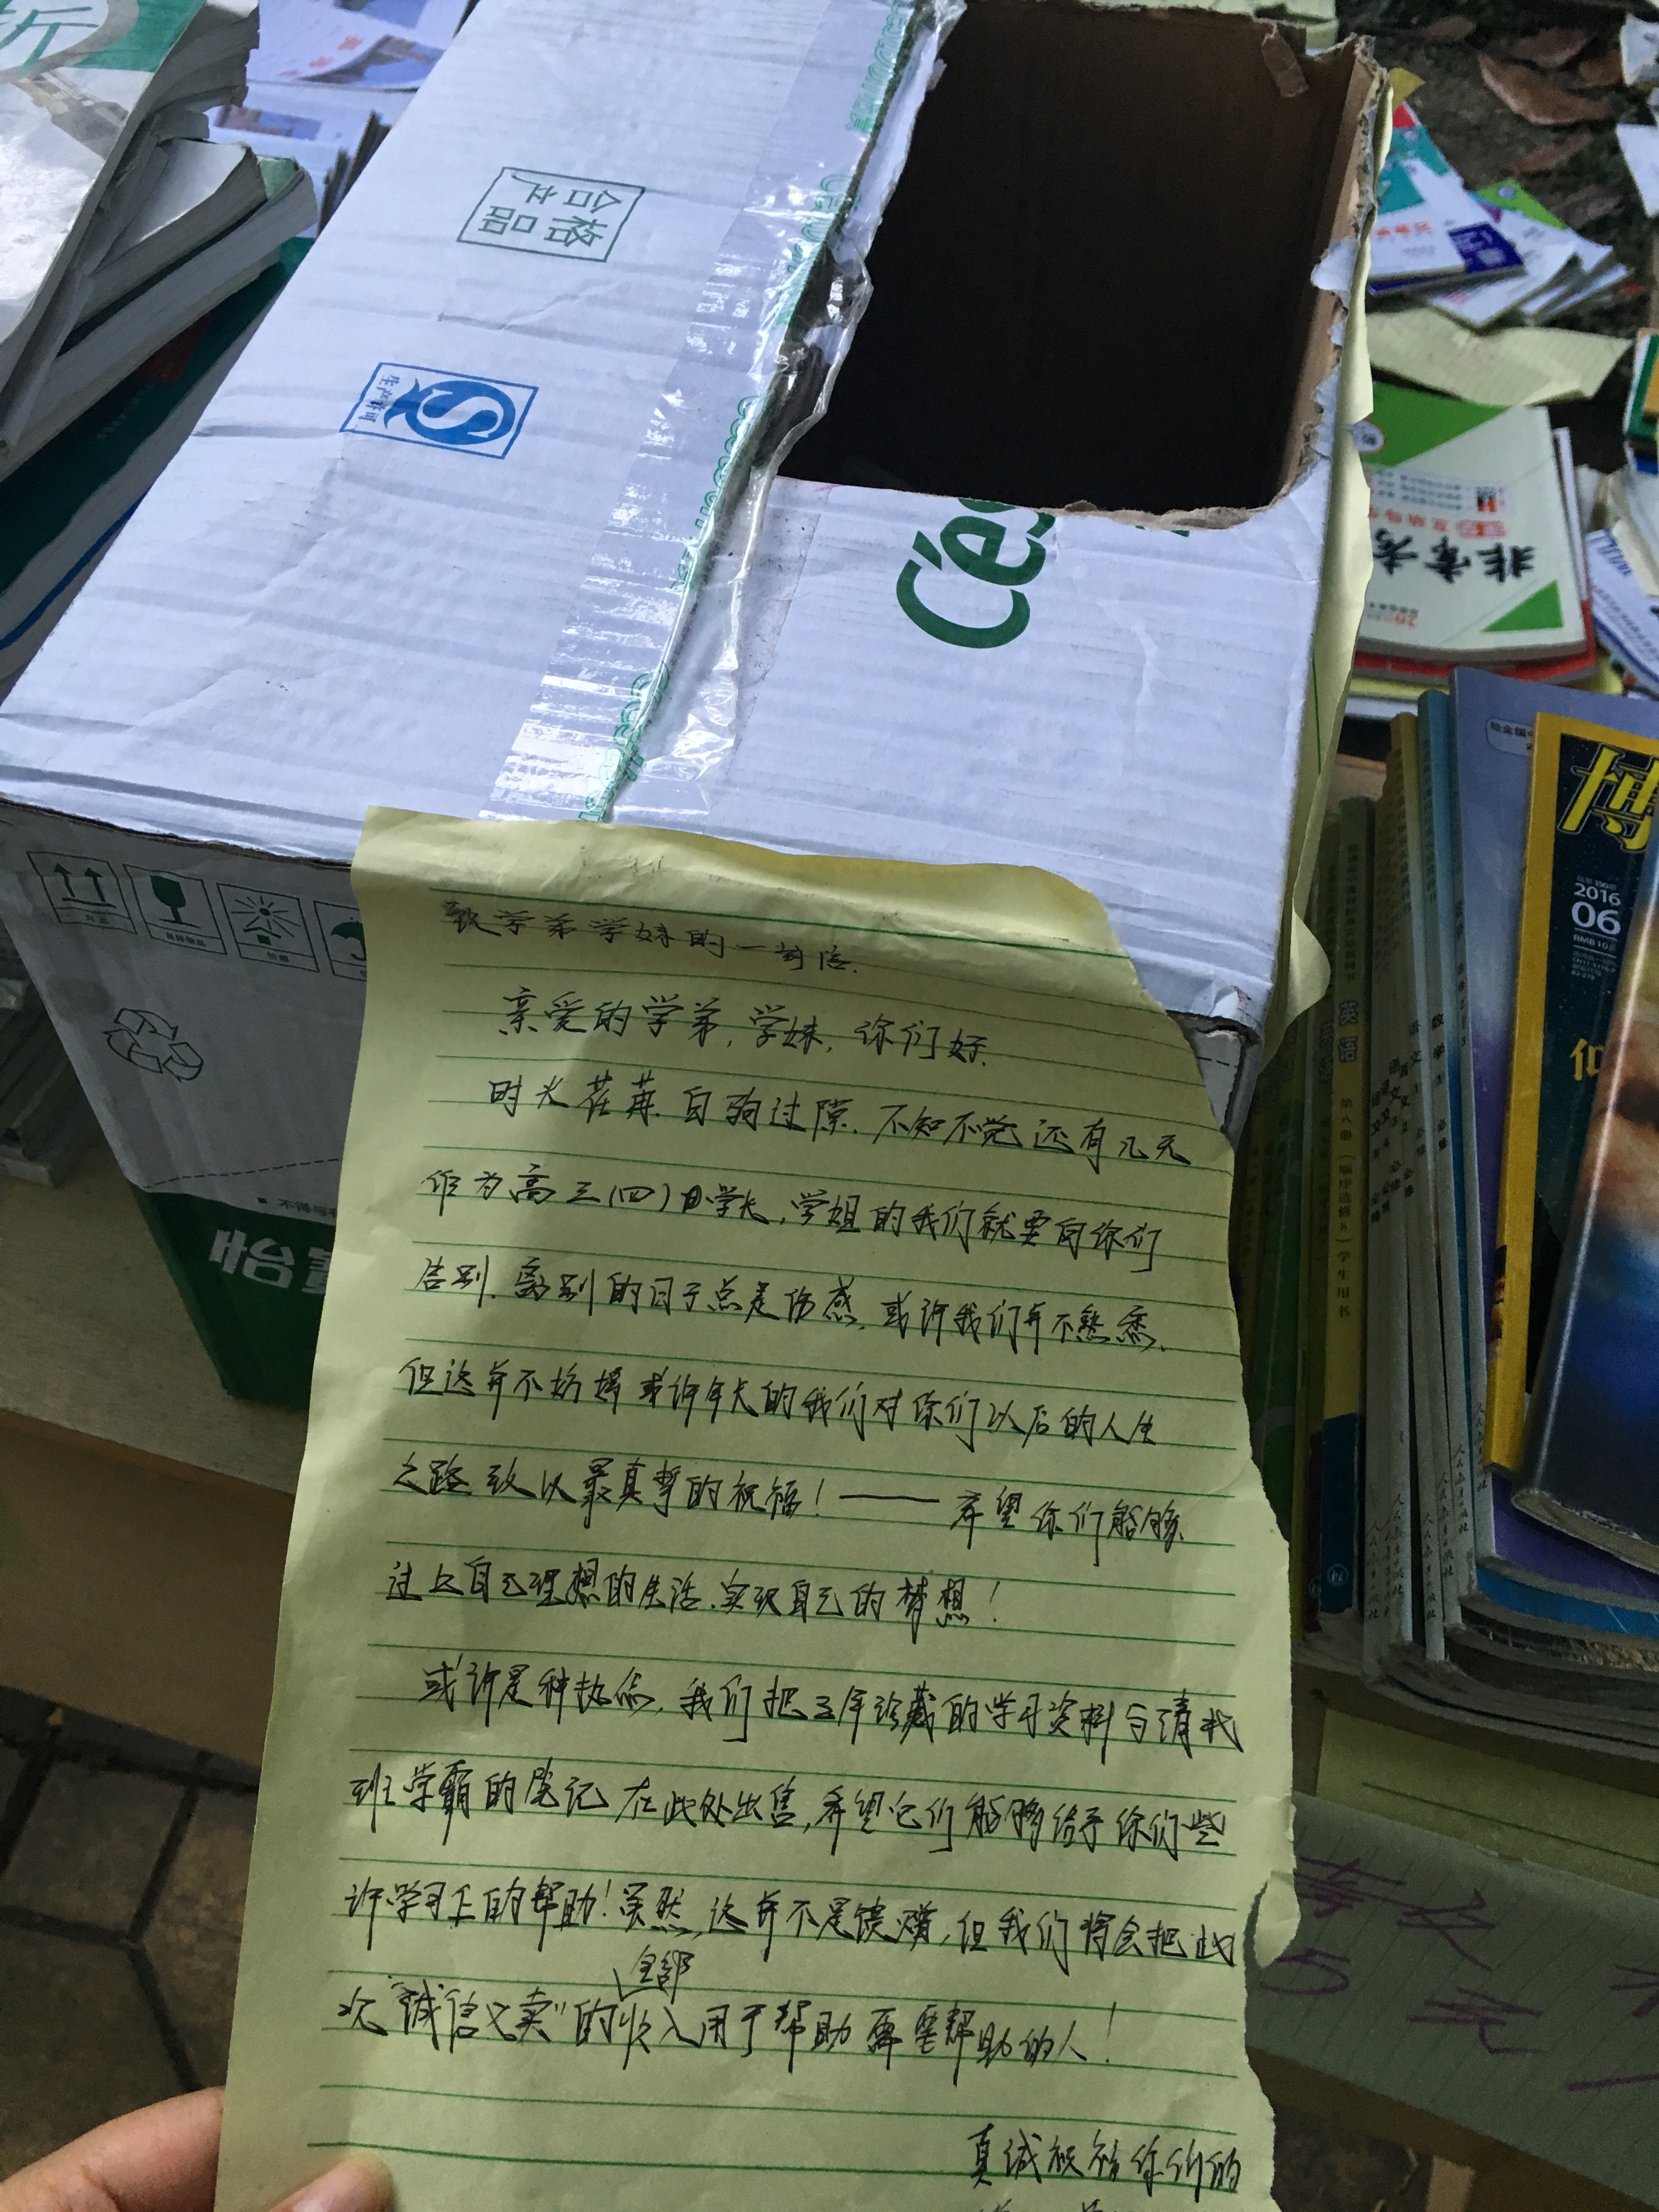 致学弟学妹的一封信.
亲爱的学弟,学妹,你们好.
时光荏苒.白驹过隙.不知不觉还有几天
作为高三(四)的学长,学姐的我们就要向你们
告别.离别的日子总是伤感.或许我们并不熟悉.
但这并不妨碍或许年长的我们对你们以后的人生
之路致以最真挚的祝福!——希望你们能够
过上自己理想的生活.实现自己的梦想!
或许是种执念,我们把三年珍藏的学习资料与请我
班学霸的笔记在此处出售,希望它们能够给予你们些
许学习上的帮助!虽然,这并不是馈赠,但我们将会把此
次"诚信义卖"的全部收入用于帮助需要帮助的人!
真诚祝福你们的
合格产品
生产许可
Ces
怡
非常考
博
2016
06
RMB 10
英语
英语
第八册(顺序选修8)学生用书
语文
语文
数学
必修
人民教育出版社
5元